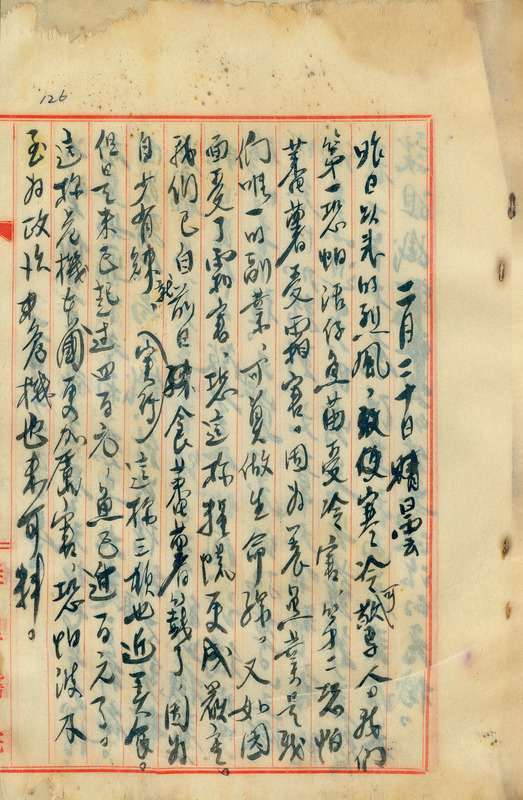 126
二月二十日 晴曇
昨日以來的烈風，致使寒冷可驚人。我們
第一恐怕活仔魚苗受冷害，第二恐怕
蕃薯受霜害。因為養魚業是我
們唯一的副業，可算做生命線。又如園
面受了霜害，恐這栋糧慌更成嚴重。
我們已自前日𫝆食蕃薯簽了，因為
自少有練就（實行）這栋三頓也近美食。
但是米已起過四百元，魚已過百元了。
這栋危機本國更加厲害，恐怕波及
至為政治危機也未可料。